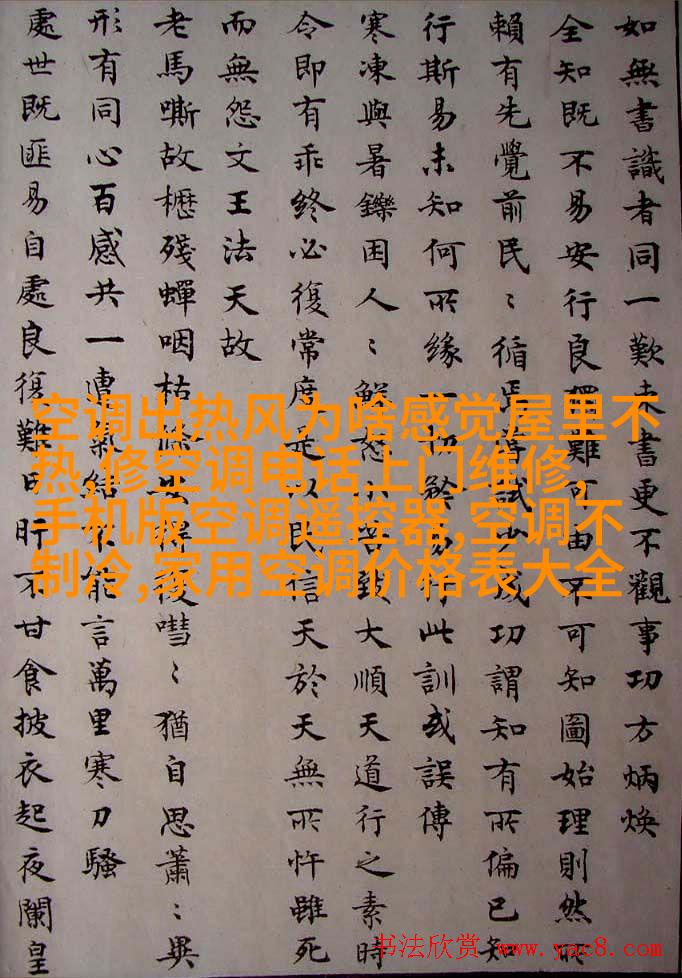 如無書識者同一歎未書更不觀事功方炳煥
全知既不易安行良難可由不可知圖始理則然所
賴有先覺前民〻循成功謂知有所偏已知
行斯易未知何所緣一切易此訓或誤傳
寒凍與暑鑠困人〻鮮怨大順天道行之素時
令即有乖終必復常度是以民信天於天無所忤雖死
而無怨文王法天故
老馬嘶故櫪殘蟬咽枯條得復嘒〻猶自思蕭〻異
形有同心百感共一遭氣結不能言萬里寒刀騷
處世既匪易自處良復難日旰不甘食披衣起夜闌皇
空调出热风为啥感觉屋里不
热,修空调电话上门维修,
手机版空调遥控器,空调不
制冷,家用空调价格表大全
书法欣赏 www.yac8.com